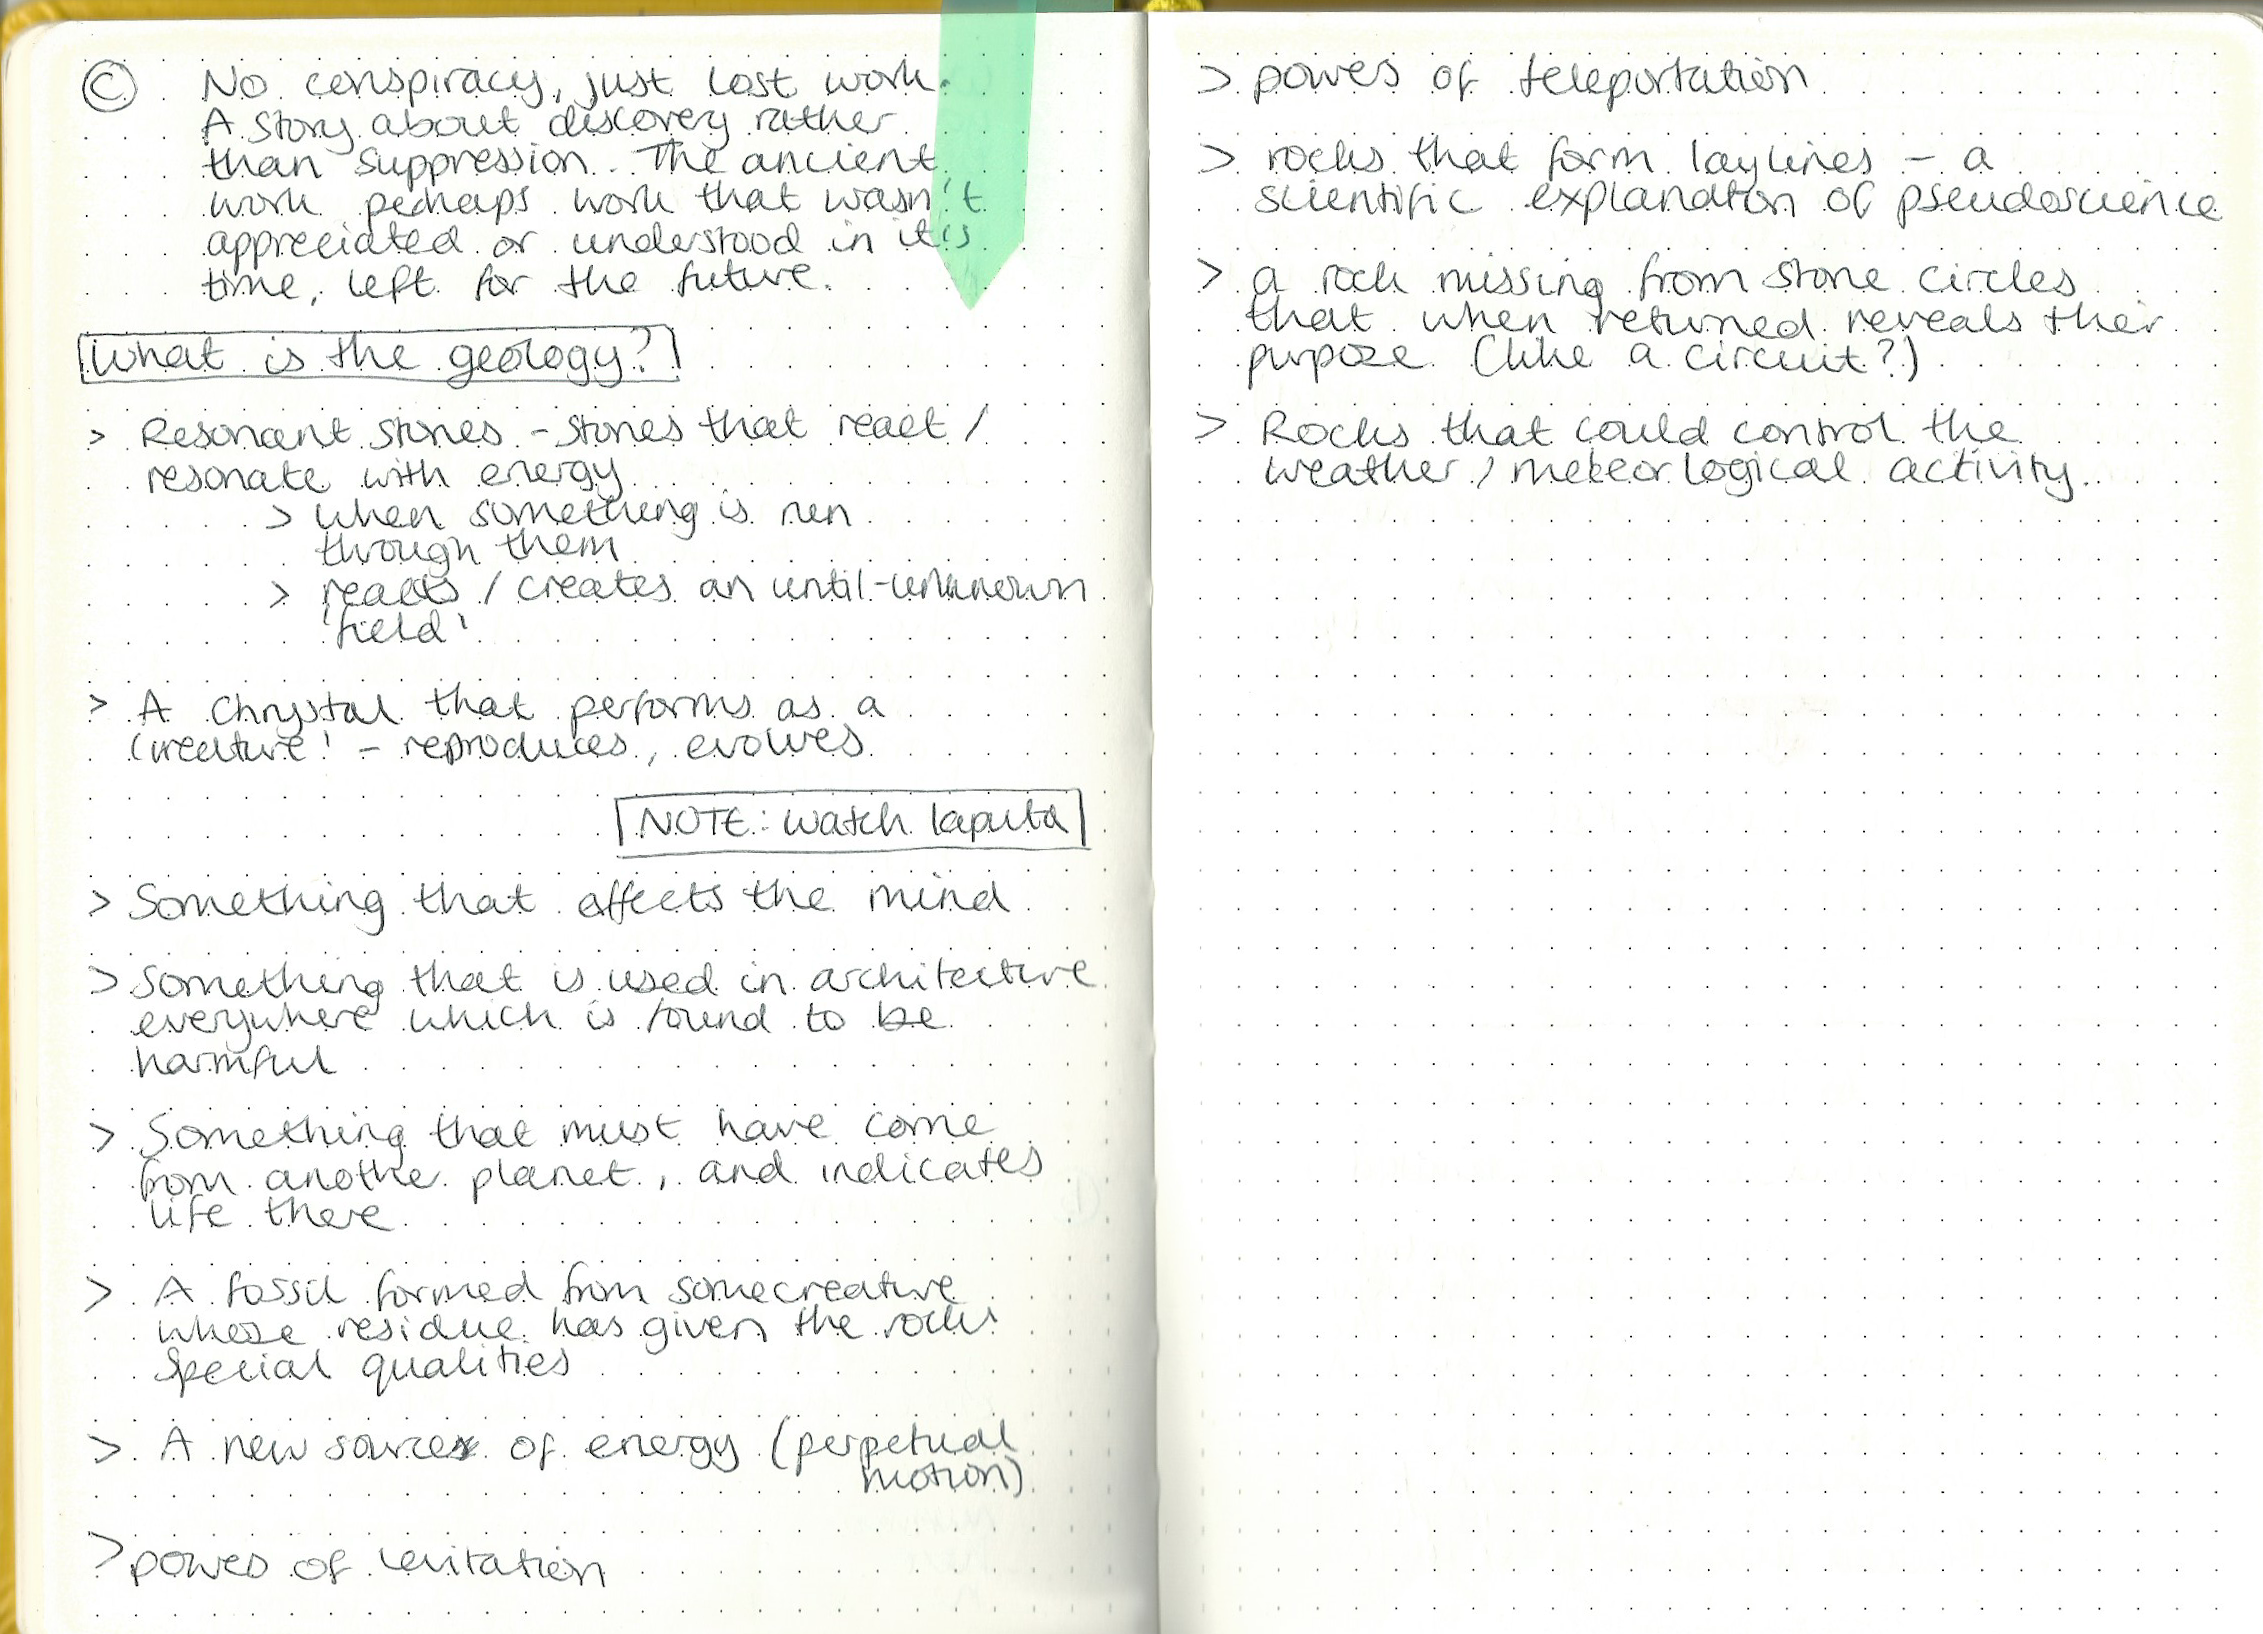 © No conspiracy, just lost work.
A story about discovery rather
than suppression. The ancient
work perhaps work that wasn't
appreciated or understood in it's
time, left for the future.
What is the geology?
> Resonant stones - stones that react /
resonate with energy
> when something is run
through them
> reacts / creates an until-unknown
'field'
> A Chrystal that performs as a
'creature' - reproduces, evolves
NOTE: watch laputa
> Something that affects the mind
> Something that is used in architecture
everywhere which is found to be
harmful
> Something that must have come
from another planet, and indicates
life there
> A fossil formed from some creature
whose residue has given the rocks
special qualities
> A new source of energy (perpetual
motion)
> powers of levitation
> powers of teleportation
> rocks that form laylines - a
scientific explanation of pseudoscience
> a rock missing from stone circles
that when returned reveals their
purpose (like a circuit?)
> Rocks that could control the
weather / meteorlogical activity.